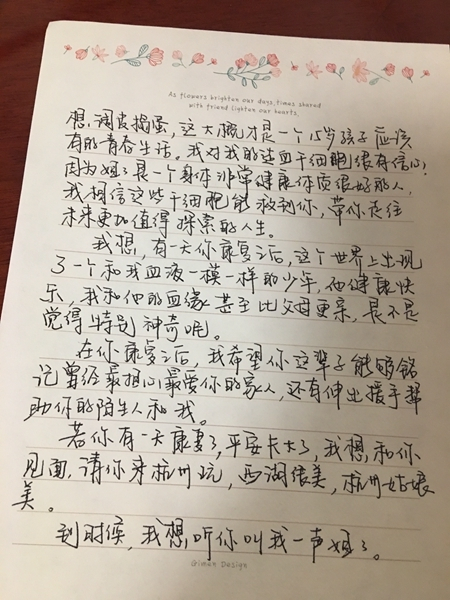 As flowers brighten our days, times shared
with friend lighten our hearts.
想,调皮捣蛋,这大概才是一个15岁孩子应该
有的青春生活。我对我的造血干细胞很有信心,
因为姐姐是一个身体非常健康体质很好的人,
我相信这些干细胞能救到你,带你走往
未来更加值得探索的人生。
我想,有一天你康复之后,这个世界上出现
了一个和我血液一模一样的少年,他健康快
乐,我和他的血缘甚至比父母更亲,是不是
觉得特别神奇呢。
在你康复之后,我希望你这辈子能够铭
记曾经最担心最爱你的家人,还有伸出援手帮
助你的陌生人和我。
若你有一天康复了,平安长大了,我想,和你
见面,请你来杭州玩,西湖很美,杭州姑娘
美。
到时候,我想,听你叫我一声姐姐。
Design